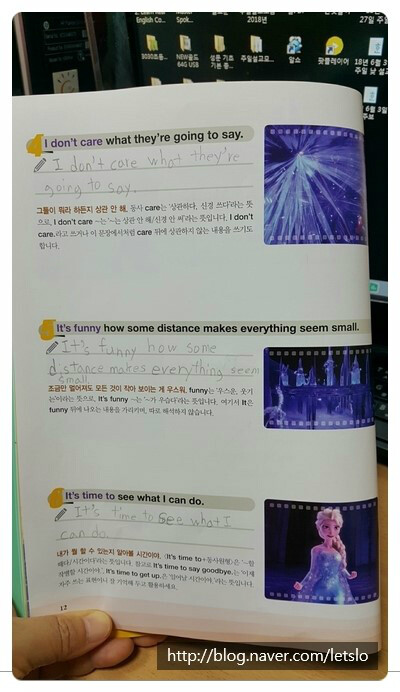 2018년
I don't care what they're going to say.
I don't care what they're
going to say.
그들이 뭐라 하든지 상관 안 해. 동사 care는 '상관하다, 신경 쓰다'라는 뜻
으로, I don't care ~는 '~는 상관 안 해/신경 안 써'라는 뜻입니다. I don't
care.라고 쓰거나 이 문장에서처럼 care 뒤에 상관하지 않는 내용을 쓰기도
합니다.
It's funny how some distance makes everything seem small.
It's funny how some
distance makes everything seem
small.
조금만 멀어져도 모든 것이 작아 보이는 게 우스워. funny는 '우스운, 웃기
는'이라는 뜻으로, It's funny ~는 '~가 우습다'라는 뜻입니다. 여기서 It은
funny 뒤에 나오는 내용을 가리키며, 따로 해석하지 않습니다.
It's time to see what I can do.
It's time to see what I
can do.
내가 뭘 할 수 있는지 알아볼 시간이야. 〈It's time to+동사원형〉은 '~할
때다/시간이다'라는 뜻입니다. 참고로 It's time to say goodbye.는 '이제
작별할 시간이야.', It's time to get up.은 '일어날 시간이야.'라는 뜻입니다.
자주 쓰는 표현이니 잘 기억해 두고 활용하세요.
12
http://blog.naver.com/letslo